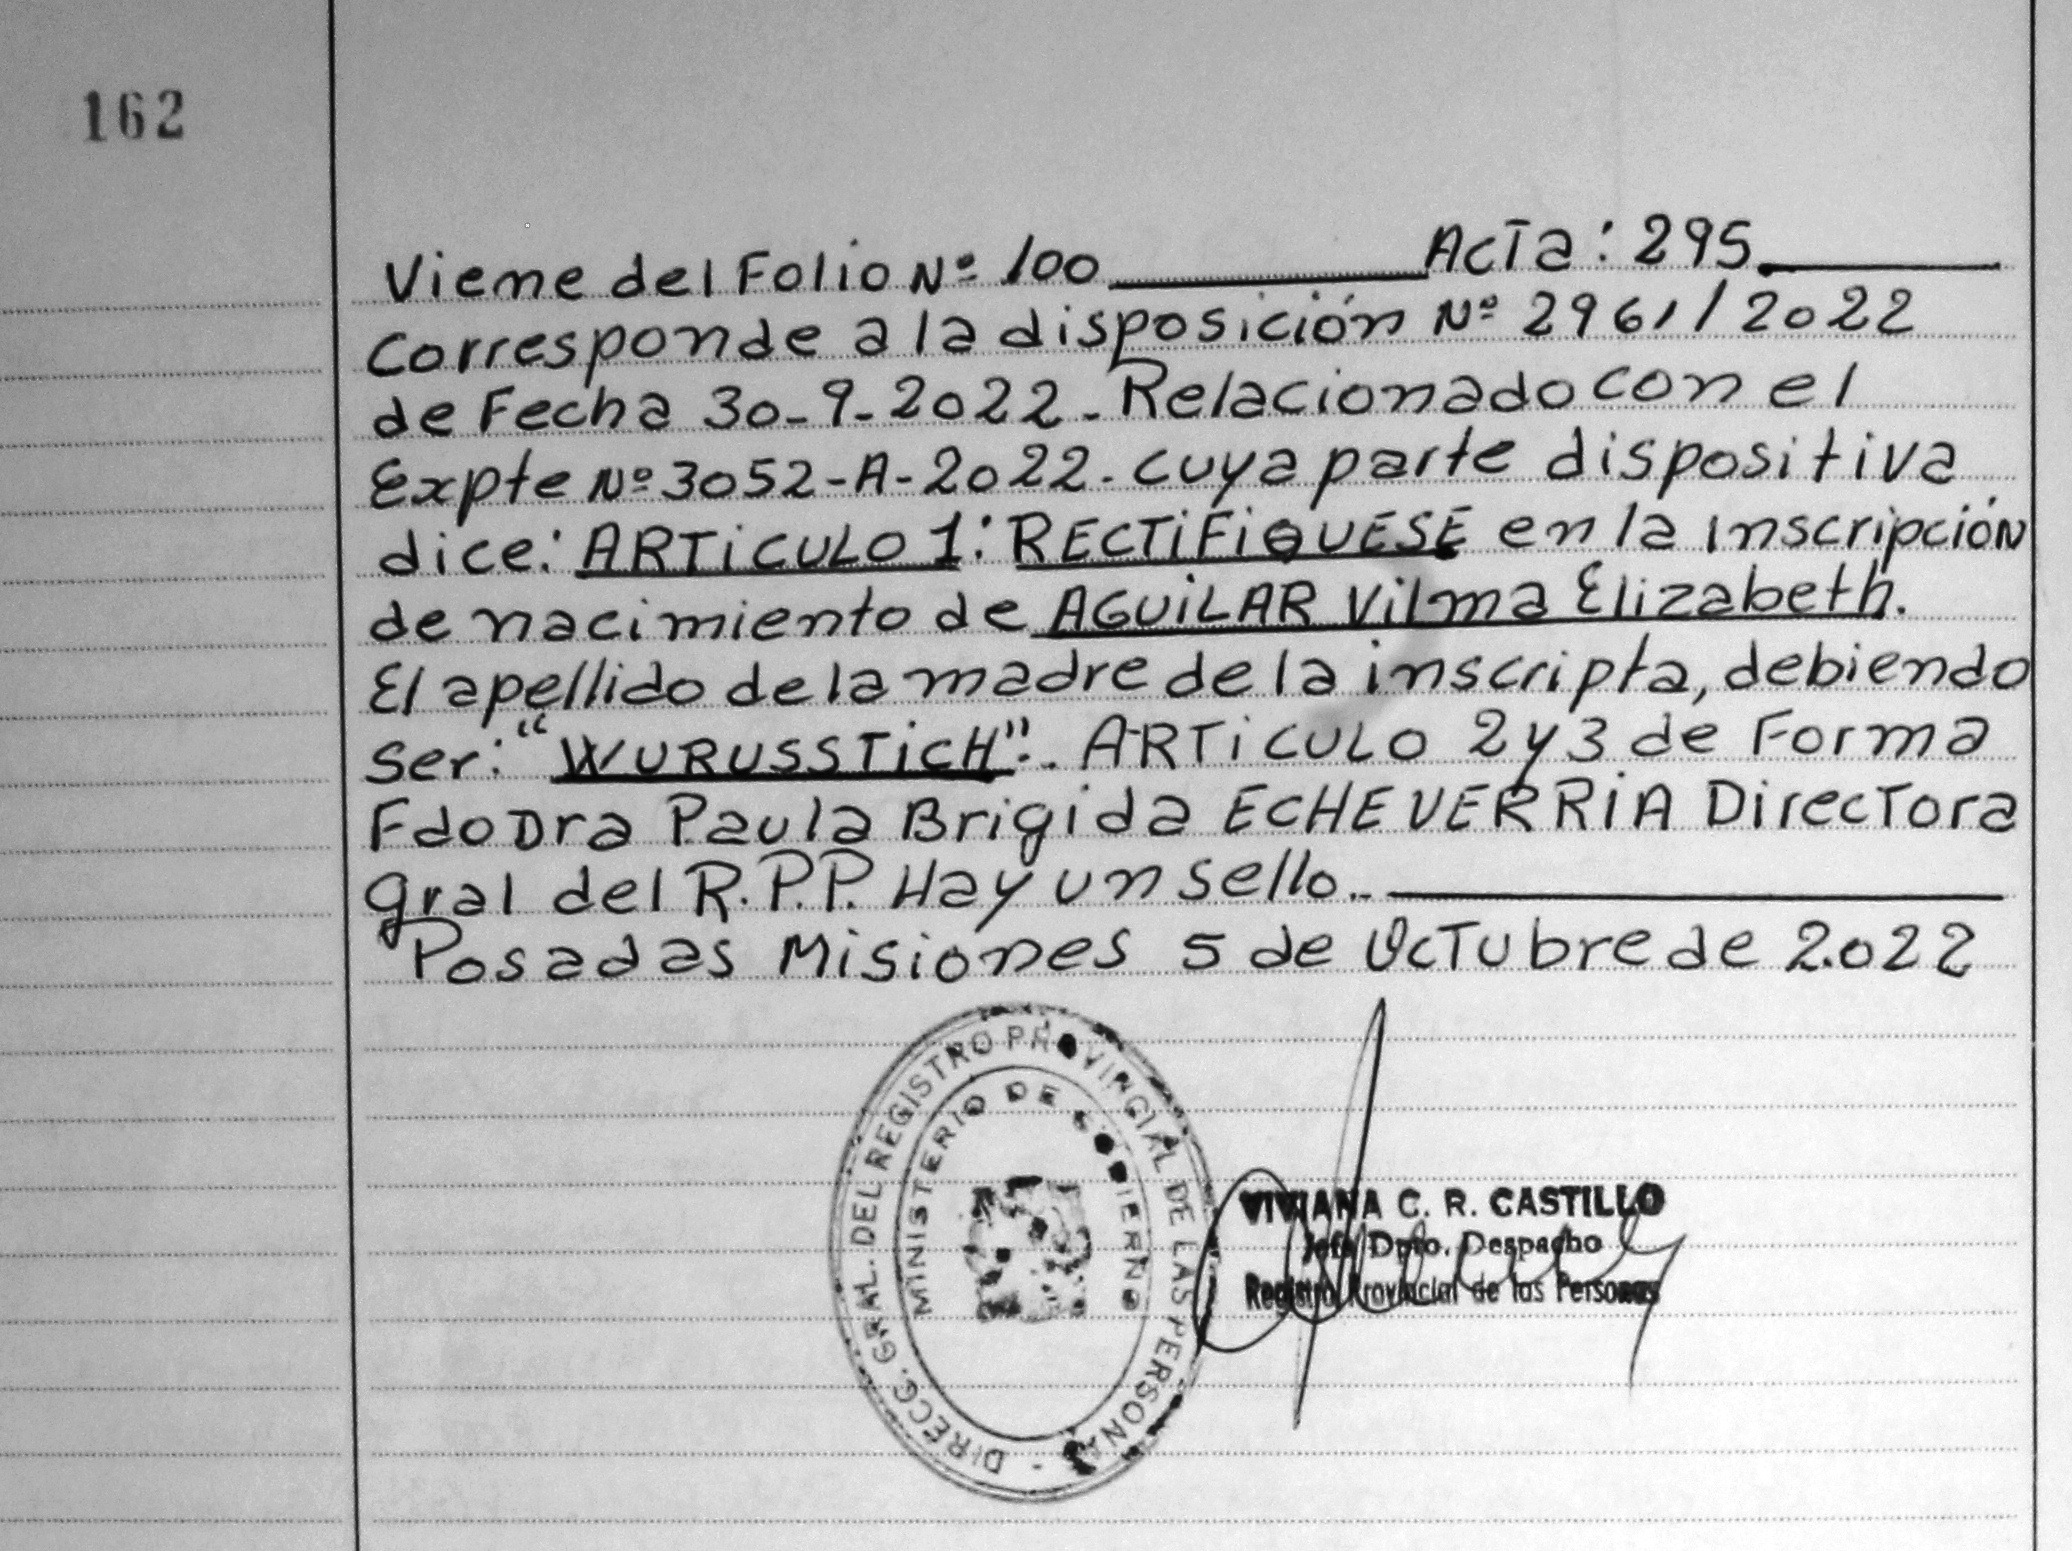 162
Viene del Folio Nº 100 Acta: 295
Corresponde a la disposición Nº 2961/2022
de Fecha 30-9-2022. Relacionado con el
Expte Nº 3052-A-2022. cuya parte dispositiva
dice: ARTiCULO 1: RECTiFiQUESE en la inscripción
de nacimiento de AGUiLAR Vilma Elizabeth.
El apellido de la madre de la inscripta, debiendo
ser: "WURUSSTiCH". ARTiCULO 2 y 3 de Forma
Fdo Dra Paula Brigida ECHEVERRiA Directora
gral del R.P.P. Hay un sello..
Posadas Misiones 5 de Octubre de 2.022
DIRECC. GRAL. DEL REGISTRO PROVINCIAL DE LAS PERSONAS -
MINISTERIO DE GOBIERNO
VIVIANA C. R. CASTILLO
Jefa Dpto. Despacho
Registro Provincial de las Personas